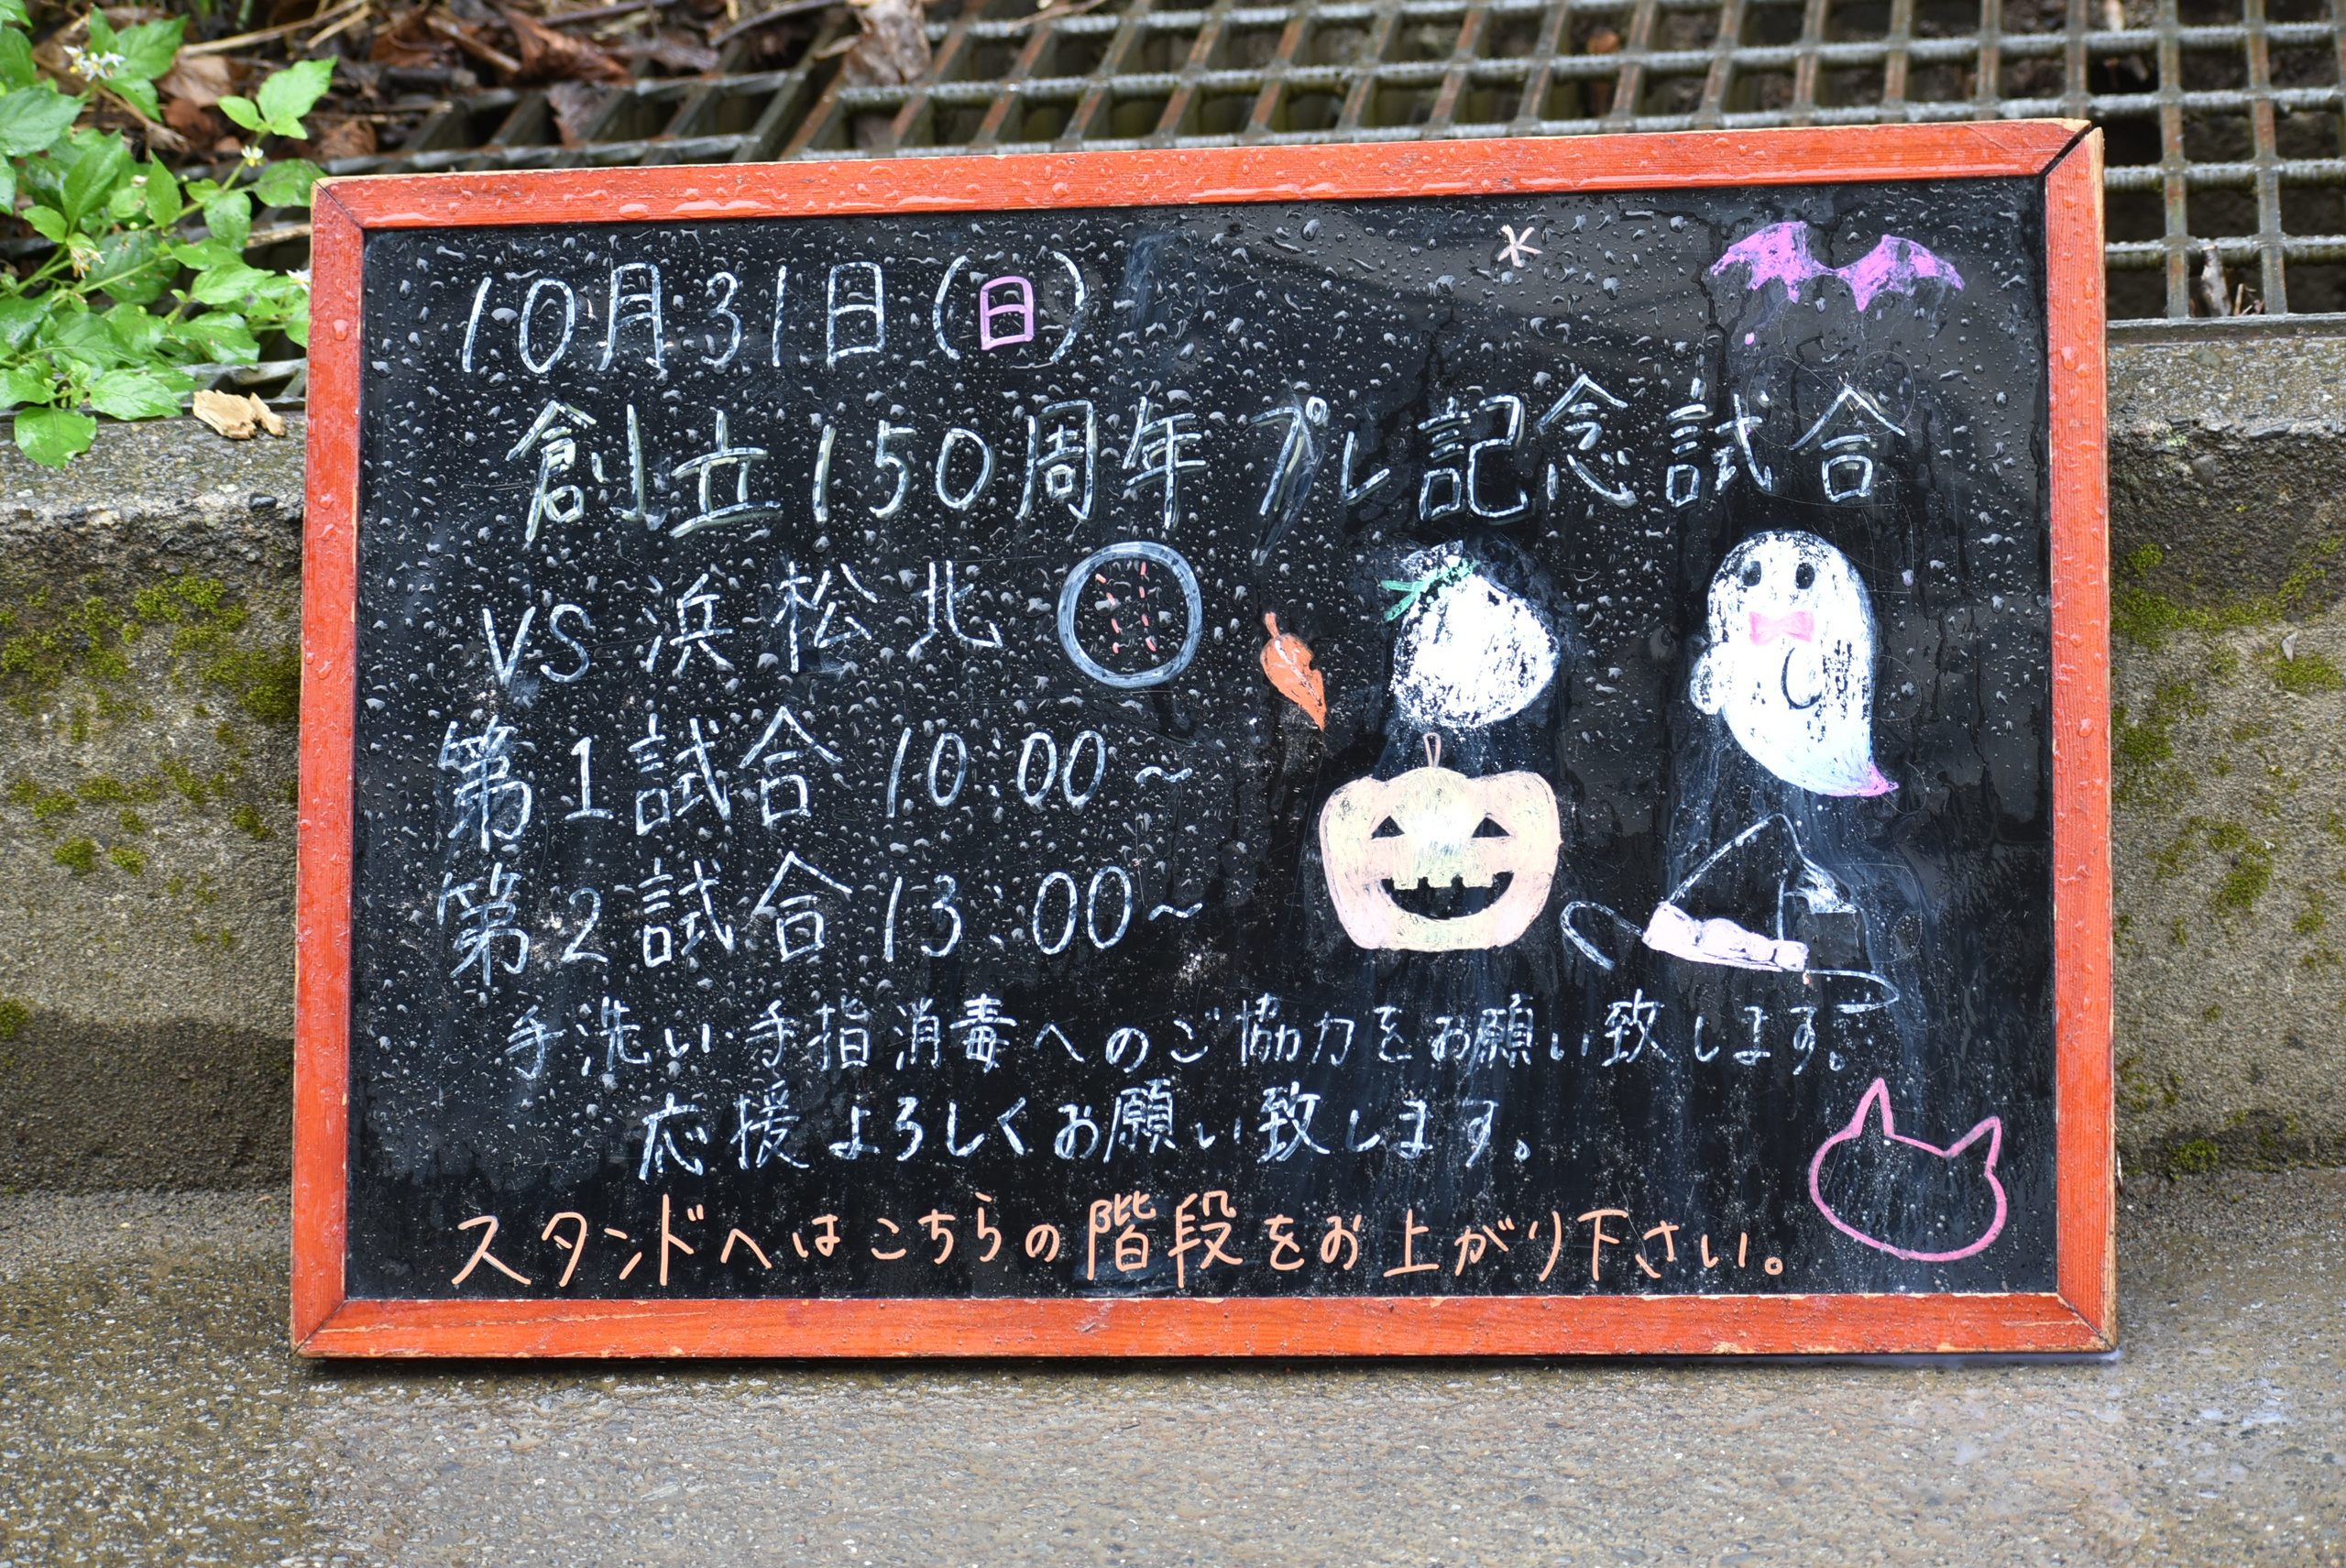 10月31日(日)
創立150周年プレ記念試合
VS 浜松北
第1試合 10:00~
第2試合 13:00~
手洗い・手指消毒へのご協力をお願い致します。
応援よろしくお願い致します。
スタンドへはこちらの階段をお上がり下さい。